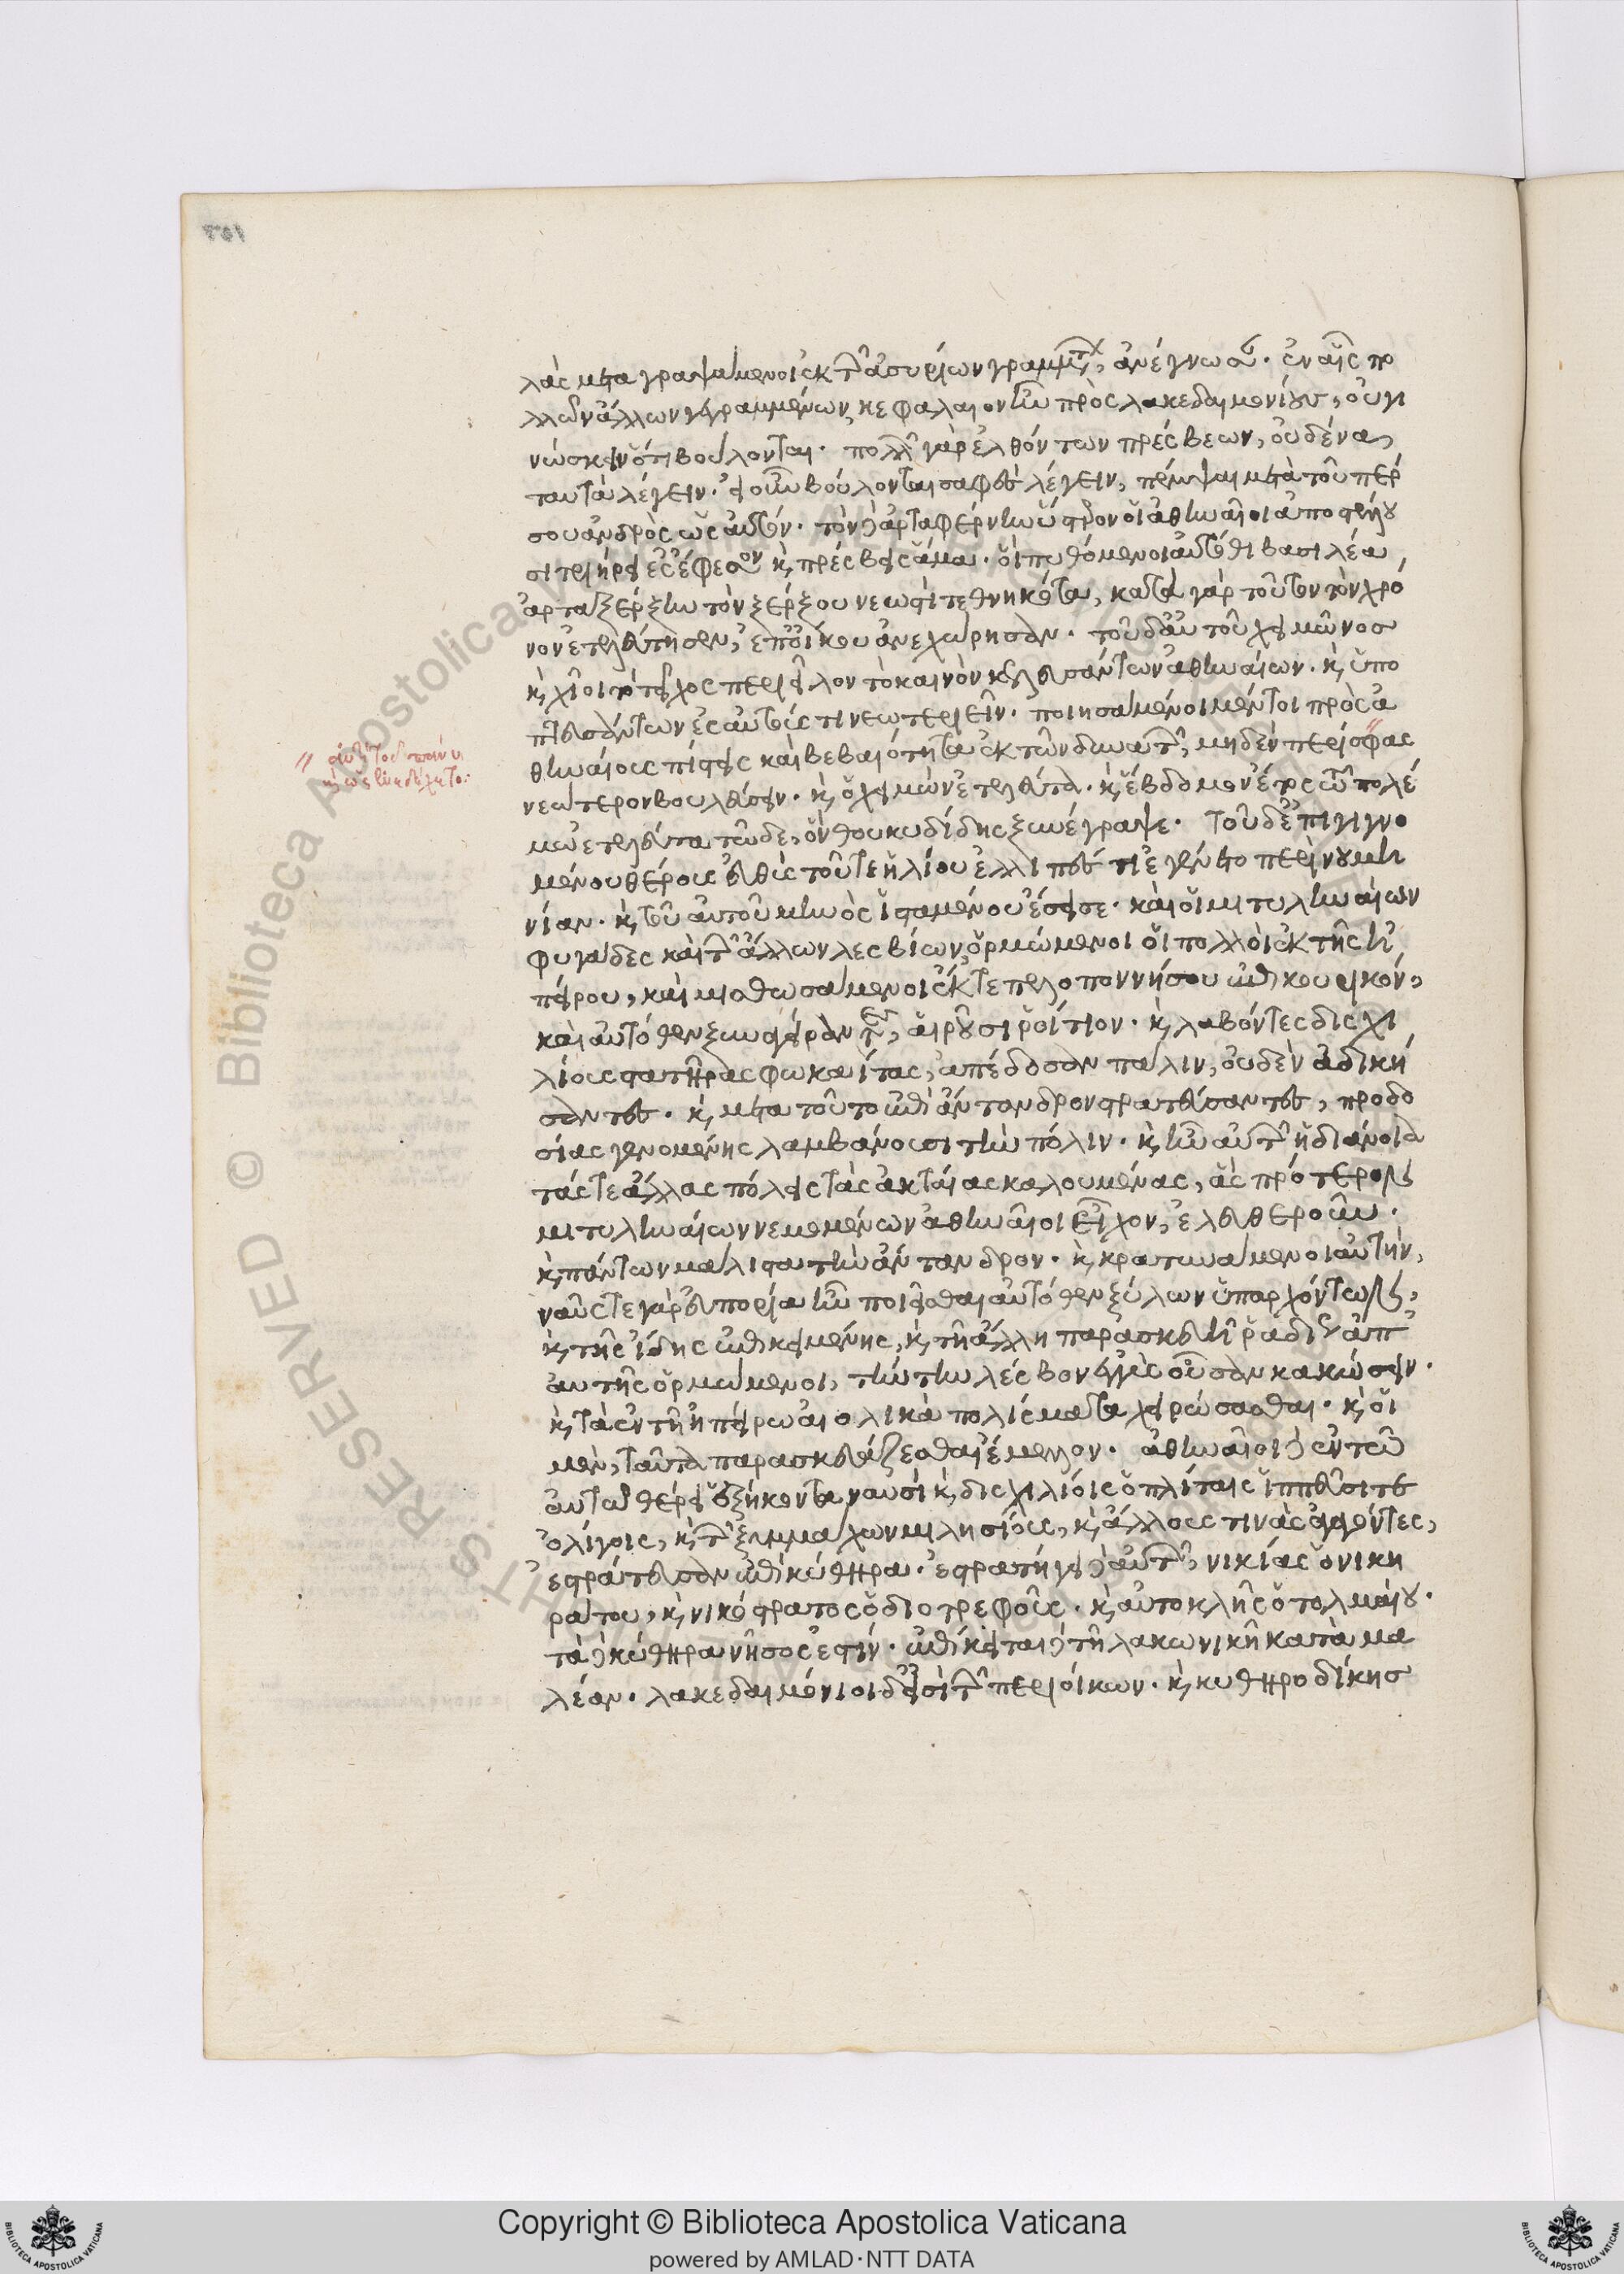 λὰς μεταγραψάμενοι ἐκ τῶν ἀσυρίων γραμμάτων, ἀνέγνωσαν. ἐν αἷς πο
λλῶν ἄλλων γεγραμμένων, κεφάλαιον ἦν πρὸς λακεδαιμονίους, οὐ γι
νώσκειν ὅτι βούλονται. πολλῶν γὰρ ἐλθόντων πρέσβεων, οὐδένα
ταυτὰ λέγειν. εἰ οὖν βούλονται σαφὲς λέγειν, πέμψαι μετὰ τοῦ πέρ
σου ἄνδρας ὡς αὐτόν. τὸν δὲ ἀρταφέρνην ὕστερον οἱ ἀθηναῖοι ἀποστέλλου
σι τριήρει ἐς ἔφεσον καὶ πρέσβεις ἅμα. οἳ πυθόμενοι αὐτόθι βασιλέα
ἀρταξέρξην τὸν ξέρξου νεωστὶ τεθνηκότα, κατὰ γὰρ τοῦτον τὸν χρό
νον ἐτελεύτησεν, ἐπ' οἴκου ἀνεχώρησαν. τοῦ δ' αὐτοῦ χειμῶνος
καὶ χῖοι τὸ τεῖχος περιεῖλον τὸ καινὸν κελευσάντων ἀθηναίων. καὶ ὑπο
πτευσάντων ἐς αὐτούς τι νεωτεριεῖν. ποιησάμενοι μέντοι πρὸς ἀ
θηναίους πίστεις καὶ βεβαιότητα ἐκ τῶν δυνατῶν, μηδὲν περὶ σφᾶς
νεώτερον βουλεύσειν. καὶ ὁ χειμὼν ἐτελεύτα. καὶ ἕβδομον ἔτος τῷ πολέ
μῳ ἐτελεύτα τῷδε, ὃν θουκυδίδης ξυνέγραψε. Τοῦ δ' ἐπιγιγνο
μένου θέρους εὐθὺς τοῦ τε ἡλίου ἐλλιπές τι ἐγένετο περὶ νουμη
νίαν. καὶ τοῦ αὐτοῦ μηνὸς ἱσταμένου ἔσεισε. καὶ οἱ μιτυληναίων
φυγάδες καὶ τῶν ἄλλων λεσβίων, ὁρμώμενοι οἱ πολλοὶ ἐκ τῆς ἠ
πείρου, καὶ μισθωσάμενοι ἔκ τε πελοποννήσου ἐπικουρικόν,
καὶ αὐτόθεν ξυναγείραντες, αἱροῦσι ῥοίτιον. καὶ λαβόντες δισχι
λίους στατῆρας φωκαΐτας, ἀπέδοσαν πάλιν, οὐδὲν ἀδική
σαντες. καὶ μετὰ τοῦτο ἐπὶ ἄντανδρον στρατεύσαντες, προδο
σίας γενομένης λαμβάνουσι τὴν πόλιν. καὶ ἦν αὐτῶν ἡ διάνοια
τάς τε ἄλλας πόλεις τὰς ἀκταίας καλουμένας, ἃς πρότερον
μιτυληναίων νεμομένων ἀθηναῖοι εἶχον, ἐλευθεροῦν.
καὶ πάντων μάλιστα τὴν ἄντανδρον. καὶ κρατυνάμενοι αὐτὴν,
ναῦς τε γὰρ εὐπορία ἦν ποιεῖσθαι αὐτόθεν ξύλων ὑπαρχόντων,
καὶ τῆς ἴδης ἐπικειμένης, καὶ τῇ ἄλλῃ παρασκευῇ ῥαδίως ἀπ'
αὐτῆς ὁρμώμενοι, τήν τε λέσβον ἐγγὺς οὖσαν κακώσειν.
καὶ τὰ ἐν τῇ ἠπείρῳ αἰολικὰ πολίσματα χειρώσασθαι. καὶ οἱ
μὲν, ταῦτα παρασκευάζεσθαι ἔμελλον. ἀθηναῖοι δὲ ἐν τῷ
αὐτῷ θέρει ἑξήκοντα ναυσὶ καὶ δισχιλίοις ὁπλίταις ἱππεῦσί τε
ὀλίγοις, καὶ τῶν ξυμμάχων μιλησίους, καὶ ἄλλους τινὰς ἀγαγόντες,
ἐστράτευσαν ἐπὶ κύθηρα. ἐστρατήγει δὲ αὐτῶν, νικίας ὁ νικη
ράτου, καὶ νικόστρατος ὁ διοτρεφοῦς. καὶ αὐτοκλῆς ὁ τολμαίου.
τὰ δὲ κύθηρα νῆσός ἐστιν. ἐπίκειται δὲ τῇ λακωνικῇ κατὰ μα
λέαν. λακεδαιμόνιοι δ' εἰσὶ τῶν περιοίκων. καὶ κυθηροδίκης